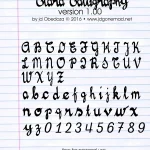 Calligraphy
version 1.00
by jd Obedoza © 2016 • www.jdgonemad.net
A B C D E F G H I J K
L M N O P Q R S T U V
W X Y Z
a b c d e f g h i j k l m
n o p q r s t u v w x
y z 0 1 2 3 4 5 6 7 8 9